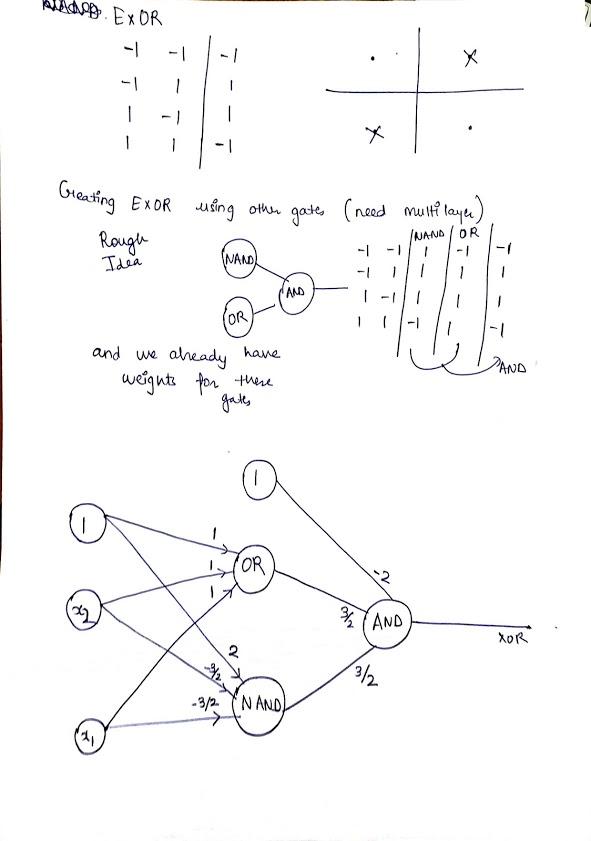 ExOR
-1 -1 | -1
-1 1 | 1
1 -1 | 1
1 1 | -1
Creating ExOR using other gates (need multilayer)
Rough
Idea
NAND
OR
AND
NAND OR
-1 -1 | 1 | -1 | -1
-1 1 | 1 | 1 | 1
1 -1 | 1 | 1 | 1
1 1 | -1 | 1 | -1
AND
and we already have
weights for these
gates
1
1
x2
x1
1
1
1
OR
2
-3/2
-3/2
NAND
-2
3/2
3/2
AND
XOR